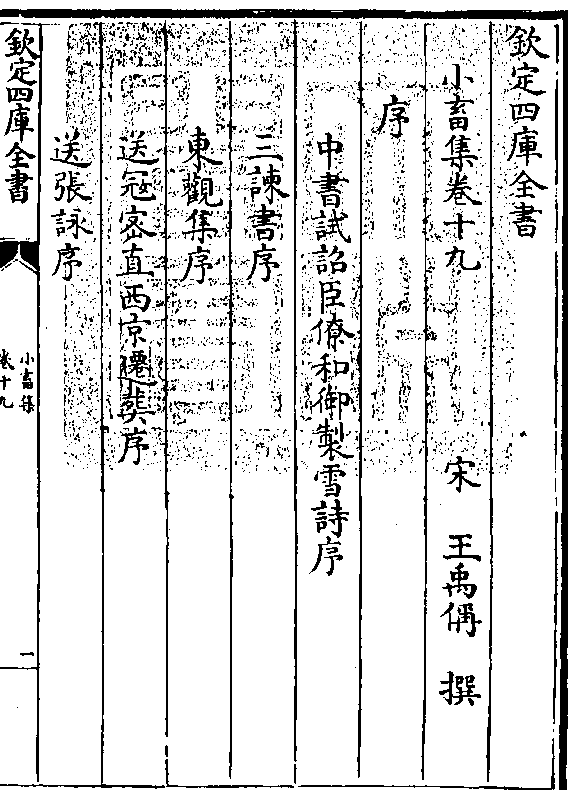 欽定四庫全書
小畜集卷十九　宋　王禹偁　撰
序
中書試詔臣僚和御製雪詩序
三諫書序
東觀集序
送寇密直西京遷葬序
送張詠序
欽定四庫全書
小畜集
卷十九
一